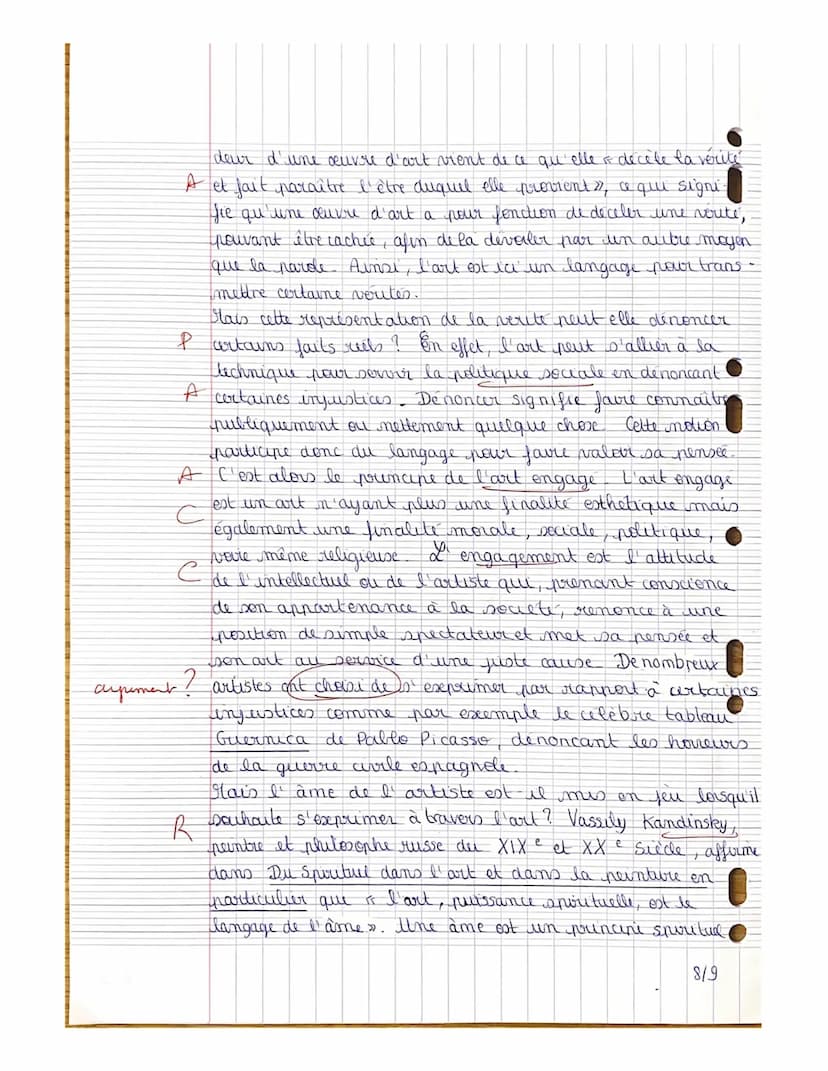 deur d'une œuvre d'art vient de ce qu'elle « décèle la vérité
A et fait paraître l'être duquel elle provient », ce qui signi-
fie qu'une œuvre d'art a pour fonction de déceler une vérité,
pouvant être cachée, afin de la dévoiler par un autre moyen
que la parole. Ainsi, l'art est ici un langage pour trans-
mettre certaine vérités.
Mais cette représentation de la vérité peut elle dénoncer
P certains faits réels ? En effet, l'art peut s'allier à la
technique pour servir la politique sociale en dénoncant
A certaines injustices. Dénoncer signifie faire connaître
publiquement ou nettement quelque chose. Cette notion
participe donc du langage pour faire valoir sa pensée.
A C'est alors le principe de l'art engagé. L'art engagé
C est un art n'ayant plus une finalité esthétique mais
également une finalité morale, sociale, politique,
voire même religieuse. L'engagement est l'attitude
C de l'intellectuel ou de l'artiste qui, prenant conscience
de son appartenance à la société, renonce à une
position de simple spectateur et met sa pensée et
son art au service d'une juste cause. De nombreux
argument ? artistes ont choisi de s'exprimer par rapport à certaines
injustices comme par exemple le célèbre tableau
Guernica de Pablo Picasso, dénoncant les horreurs
de la guerre civile espagnole.
Mais l'âme de l'artiste est-il mis en jeu lorsqu'il
R souhaite s'exprimer à travers l'art ? Vassily Kandinsky,
peintre et philosophe russe du XIXe et XXe Siècle, affirme
dans Du Spirituel dans l'art et dans la peinture en
particulier que « l'art, puissance spirituelle, est le
langage de l'âme ». Une âme est un principe spirituel
8/9